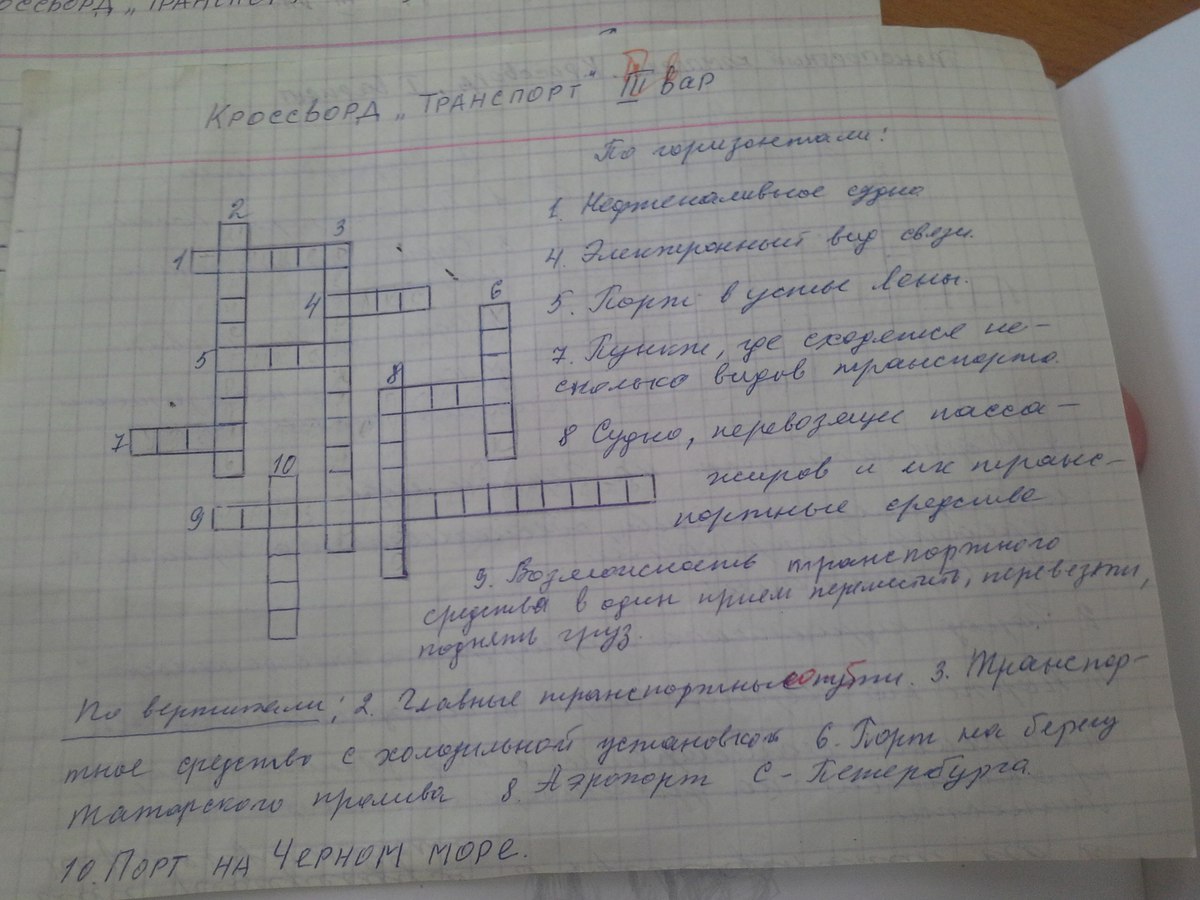 КРОССВОРД „ТРАНСПОРТ"
КРОССВОРД „ТРАНСПОРТ" III вар
По горизонтали:
1. Нефтеналивное судно
4. Электронный вид связи.
5. Порт в устье Лены.
7. Пункт, где сходятся не-
сколько видов транспорта.
8 Судно, перевозящее пасса-
жиров и их транс-
портные средства
9. Возможность транспортного
средства в один прием переместить, перевезти,
поднять груз.
2
3
1
4
6
5
8
7
10
9
По вертикали: 2. Главные транспортные пути. 3. Транспор-
тное средство с холодильной установкой 6. Порт на берегу
Татарского пролива 8. Аэропорт С-Петербурга.
10. ПОРТ НА ЧЕРНОМ МОРЕ.